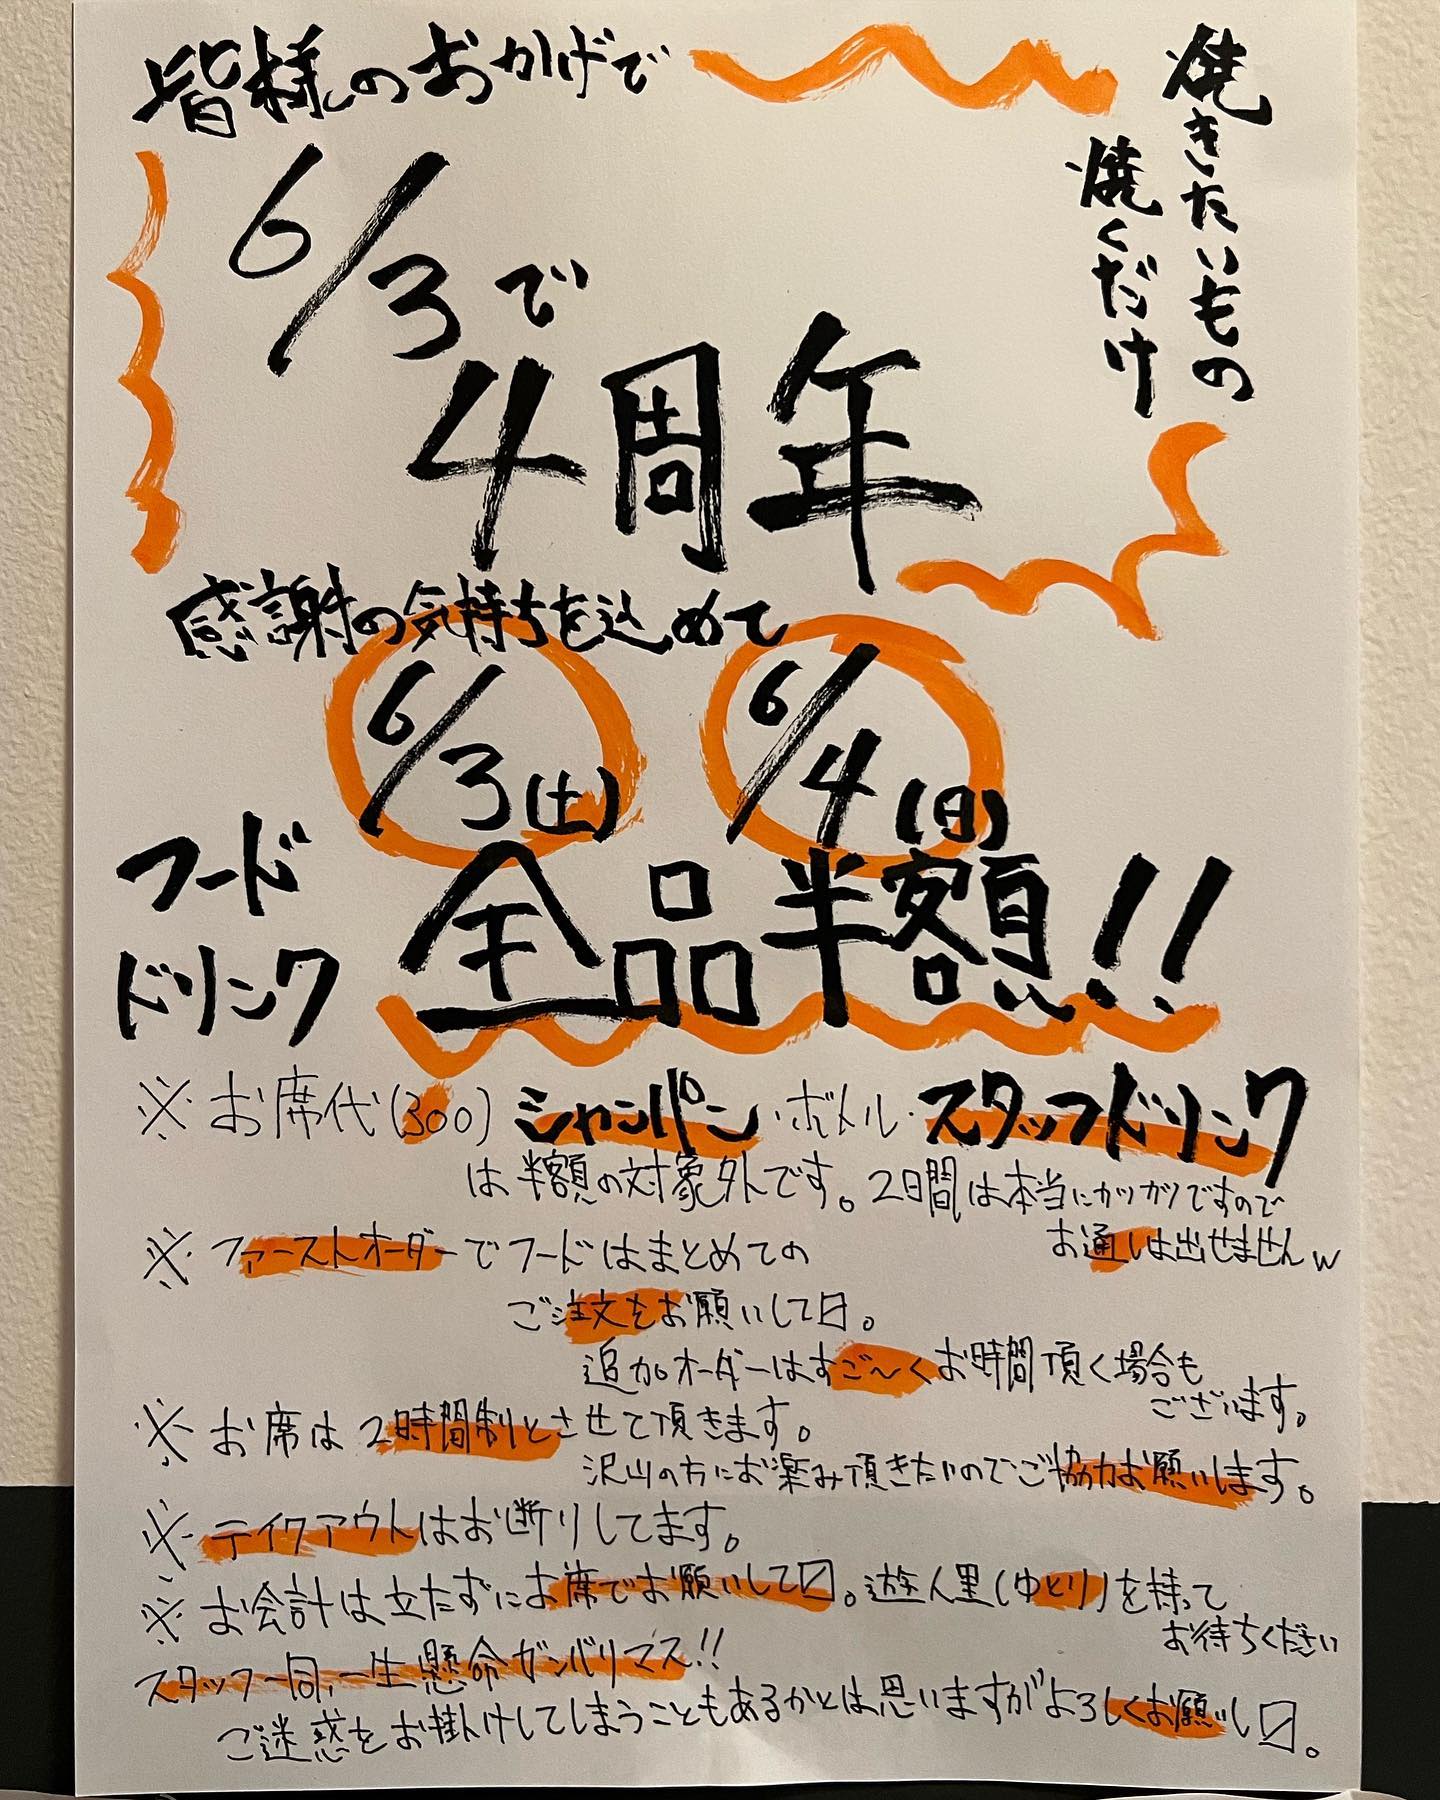 皆様のおかげで
焼きたいもの
焼くだけ
6/3で
4周年
感謝の気持ちを込めて
6/3(土) 6/4(日)
フード
ドリンク
全品半額!!
※お席代(300)シャンパン・ボトル・スタッフドリンク
は半額の対象外です。2日間は本当にカツカツですので
お通しは出せませんw
※ファーストオーダーでフードはまとめての
ご注文をお願いして〼。
追加オーダーはすご〜くお時間頂く場合も
ございます。
※お席は2時間制とさせて頂きます。
沢山の方にお楽み頂きたいのでご協力お願いします。
※テイクアウトはお断りしてます。
※お会計は立たずにお席でお願いして〼。遊人里(ゆとり)を持って
お待ちください
スタッフ一同,一生懸命ガンバリマス!!
ご迷惑をお掛けしてしまうこともあるかとは思いますがよろしくお願いし〼。